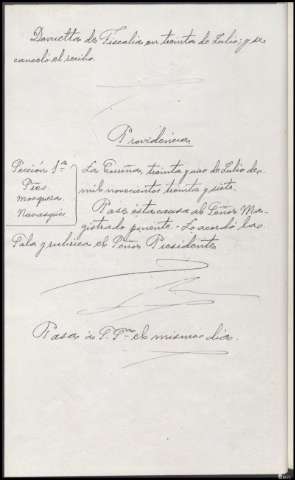 Devuelta de Fiscalia en treinta de Julio; y se
canceló el recibo.
Providencia
Sección 1ª
Sres
Mosquera
Navasqües
La Coruña, treinta y uno de Julio de
mil novecientos treinta y siete.
Pase esta causa al Señor Ma-
gistrado ponente. Lo acordó la
Sala y rubrica el Señor Presidente
Pasa á S. Sª el mismo día.